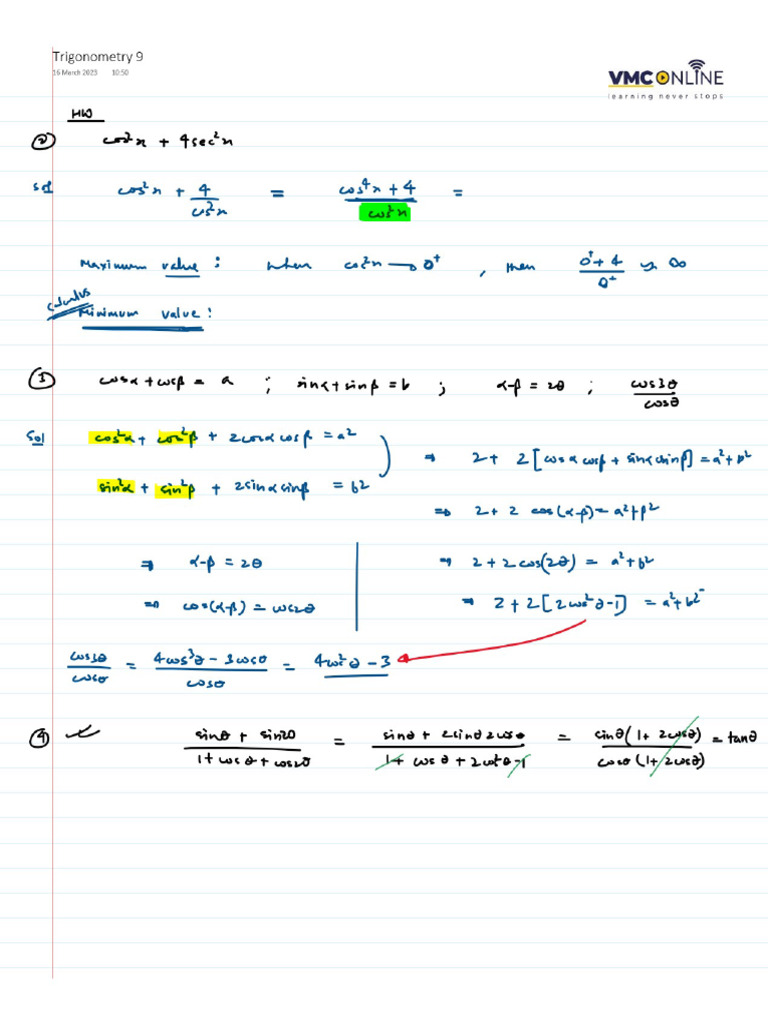 Trigonometry 9
16 March 2023 10:50
VMC ONLINE
learning never stops
HW
② cos²x + 4sec²x
Sol cos²x + 4/cos²x = (cos⁴x + 4)/cos²x =
Maximum value : when cos²x → 0⁺ , then (0⁺ + 4)/0⁺ → ∞
calculus
Minimum value :
③ cosα + cosβ = a ; sinα + sinβ = b ; α-β = 2θ ; cos3θ/cosθ
Sol cos²α + cos²β + 2cosα cosβ = a²
⇒ 2 + 2[cosα cosβ + sinα sinβ] = a² + b²
sin²α + sin²β + 2sinα sinβ = b²
⇒ 2 + 2 cos(α-β) = a² + β²
⇒ α-β = 2θ ⇒ 2 + 2cos(2θ) = a² + b²
⇒ cos(α-β) = cos2θ ⇒ 2 + 2[2cos²θ - 1] = a² + b²
cos3θ/cosθ = (4cos³θ - 3cosθ)/cosθ = 4cos²θ - 3
④ (sinθ + sin2θ)/(1 + cosθ + cos2θ) = (sinθ + 2sinθ 2cosθ)/(1 + cosθ + 2cos²θ - 1) = sinθ(1 + 2cosθ)/cosθ(1 + 2cosθ) = tanθ